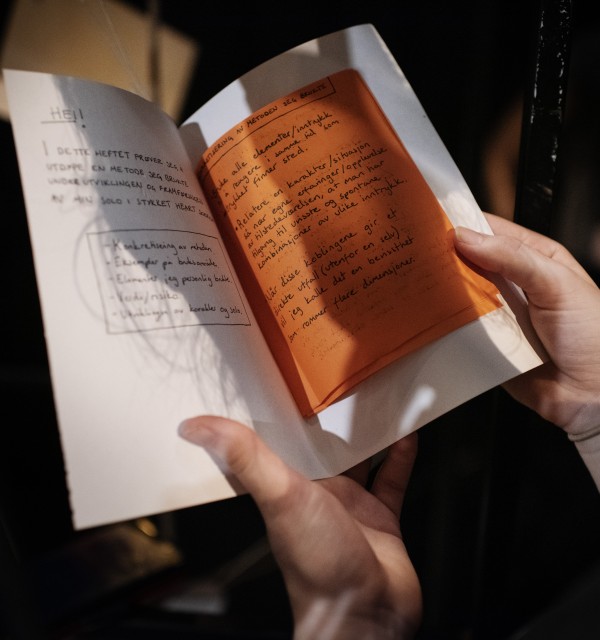 HEJ!
I DETTE HEFTET PRØVER JEG Å
UTDYPE EN METODE JEG BRUKTE
UNDER UTVIKLINGEN OG FRAMFØRINGEN
AV MIN SOLO I STYKKET HEART
- Konkretisering av metoden
- Eksempler på bruksområde
- Elementer jeg personlig bruke
- Verdi/risiko
- Utviklingen av karakter og solo.
AV METODEN JEG BRUKTE
alle elementer/inntrykk
fungere i samme rom som
stykket finner sted.
Relatere en karakter/situasjon
så nær egne erfaringer/opplevelser
er tilstedeværelsen, at man har
tilgang til unike og spontane
kombinasjoner av ulike inntrykk.
Når disse koblingene gir et
utfall (utenfor en selv)
vil jeg kalle det en bevissthet
som rommer flere dimensjoner.